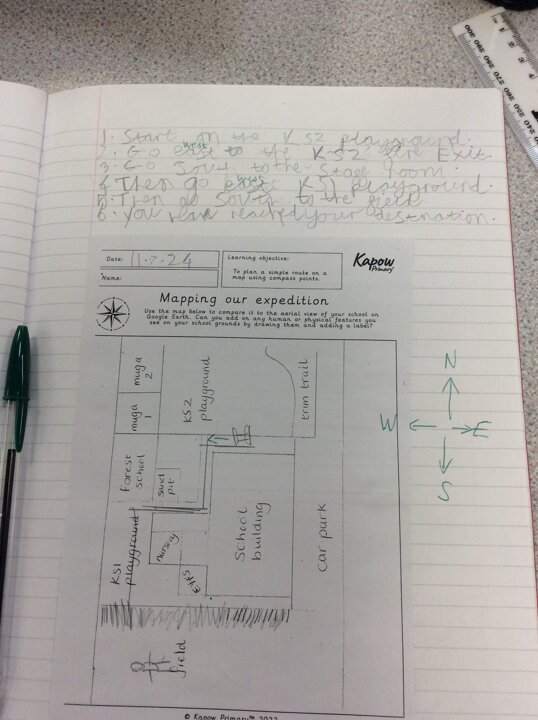 1. Start on the KS2 playground.
west
2. Go east to the KS2 fire Exit.
3. Go South to the Stage room.
west
4. Then go east KS1 playground.
5. Then go South to the field
6. You have reached your destination.
Date: 11-7-24
Name:
Learning objective:
To plan a simple route on a map using compass points.
Kapow
Primary
Mapping our expedition
Use the map below to compare it to the aerial view of your school on
Google Earth. Can you add on any human or physical features you
see on your school grounds by drawing them and adding a label?
muga 2
muga 1
KS2 playground
trim trail
forest school
sand pit
KS1 playground
nursery
EYFS
School building
car park
field
N
W
E
S
© Kapow Primary™ 2022